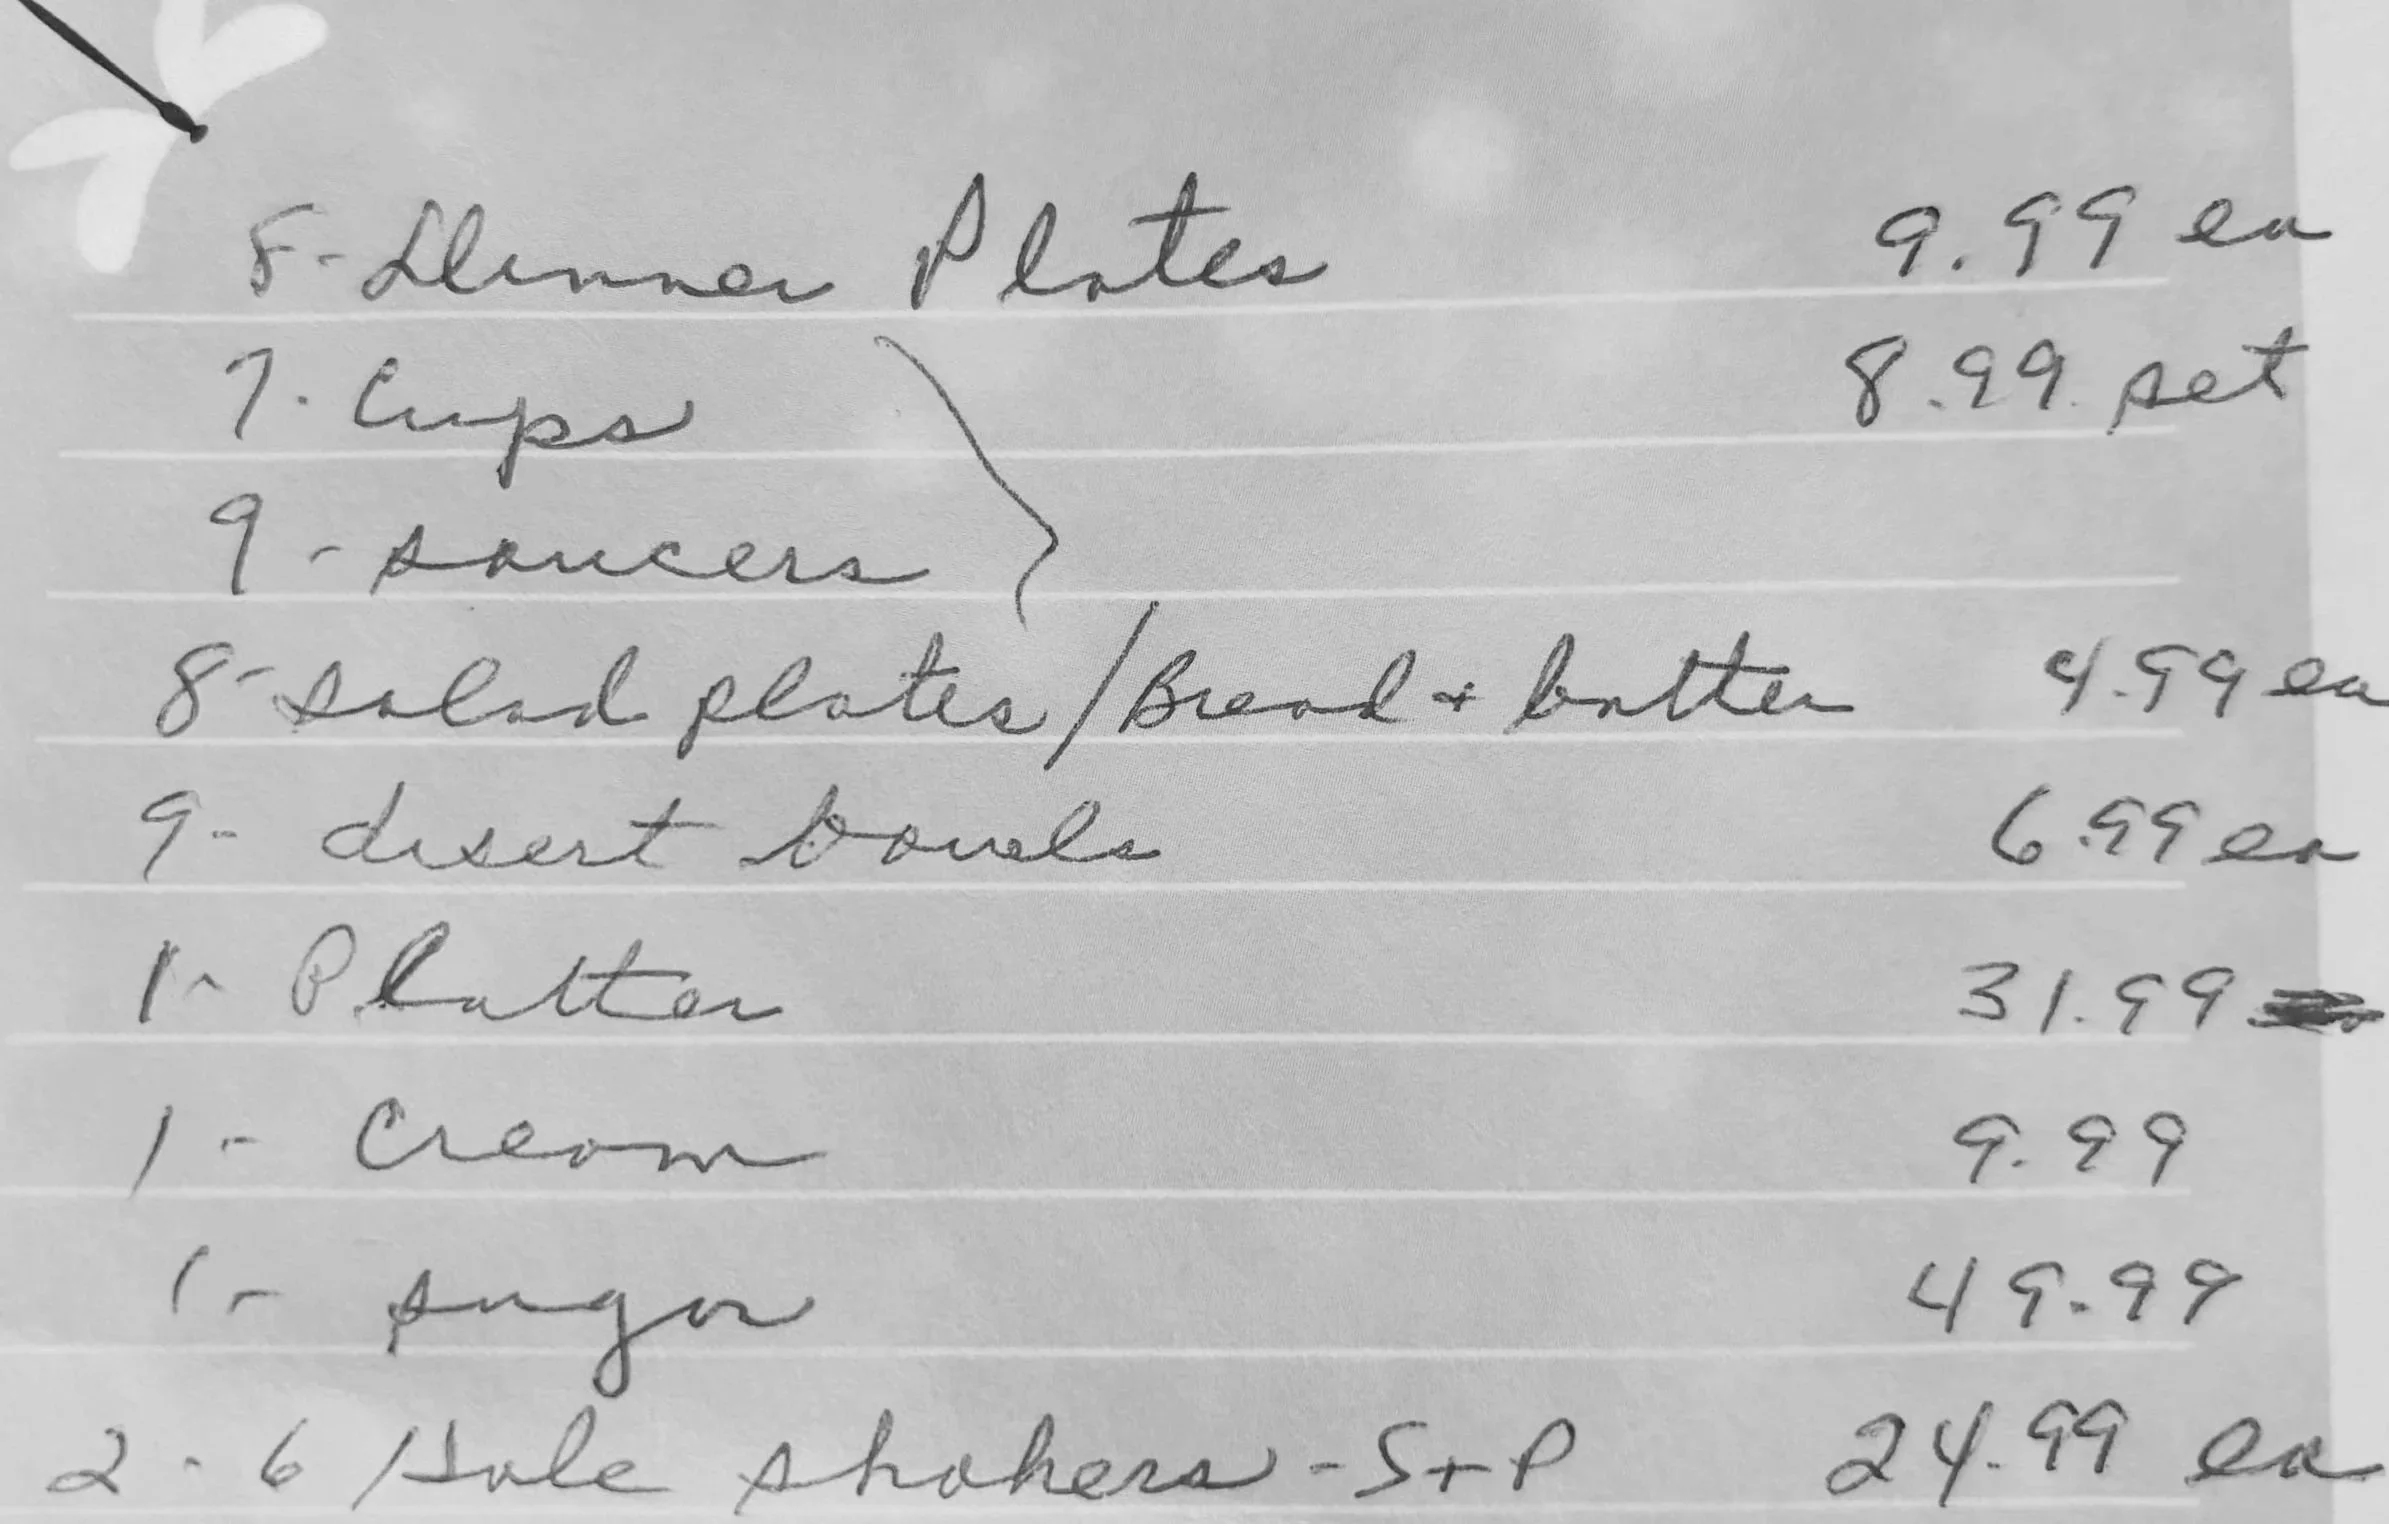 8-Dinner Plates 9.99 ea
7. Cups 8.99 set
9 - saucers
8-salad plates/Bread + butter 4.99 ea
9- desert bowls 6.99 ea
1- Platter 31.99
1 - Cream 9.99
1 - sugar 49.99
2 - 6 Hole shakers - S+P 24.99 ea